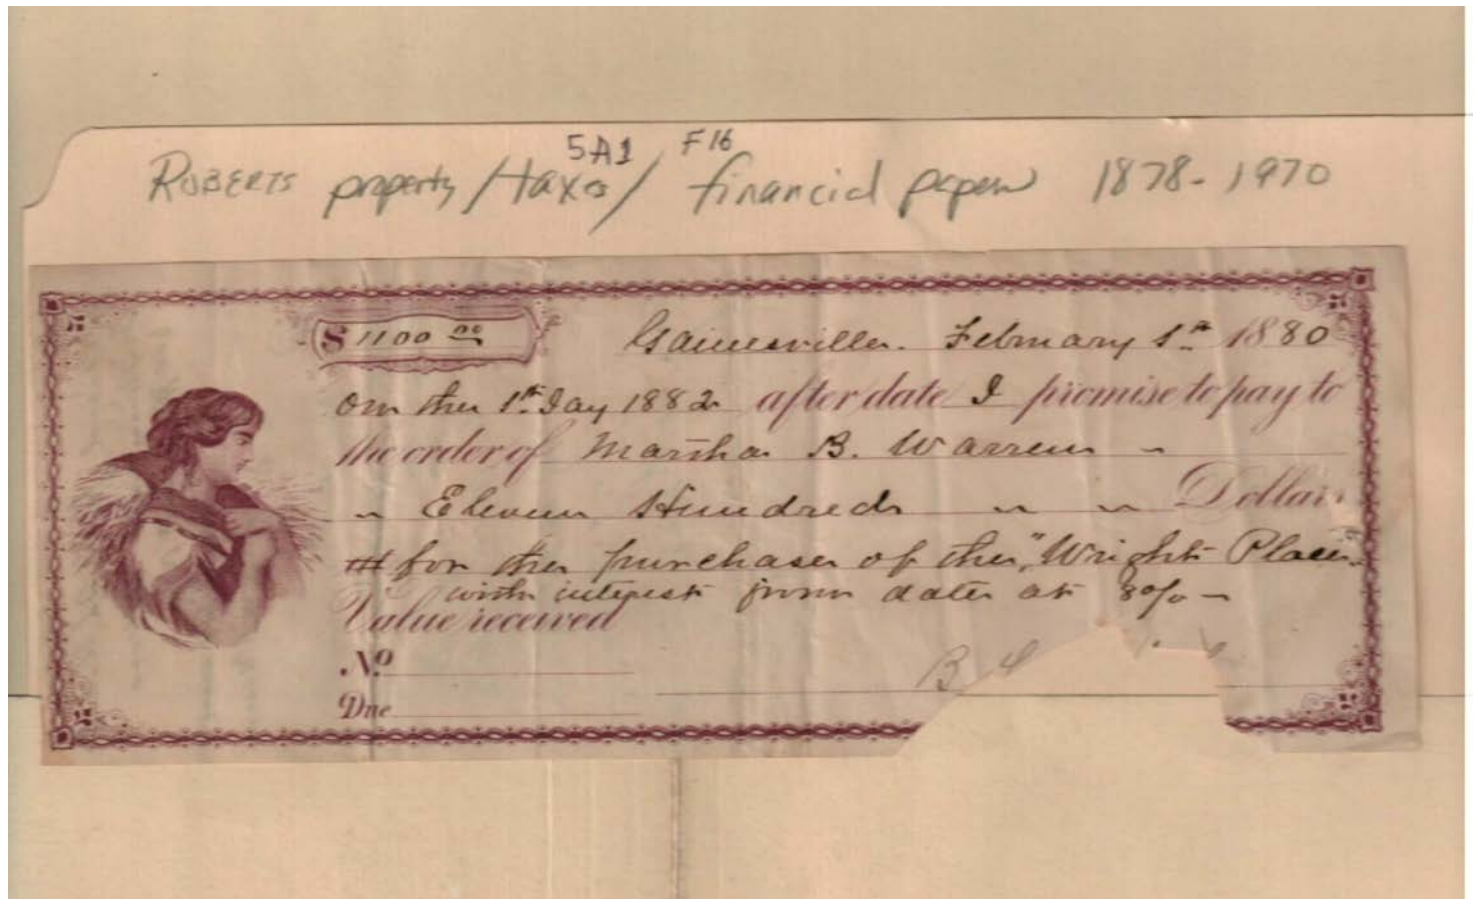 5A1 F16
ROBERTS property/taxes/ financial papers 1878-1970
$ 1100 00
Gainesville. February 1st 1880
On the 1st Day 1882 after date I promise to pay to
the order of Martha B. Warren
Eleven Hundred Dollars
for the purchase of the "Wright Place"
with interest from date at 8%
Value received
No.
B
Due